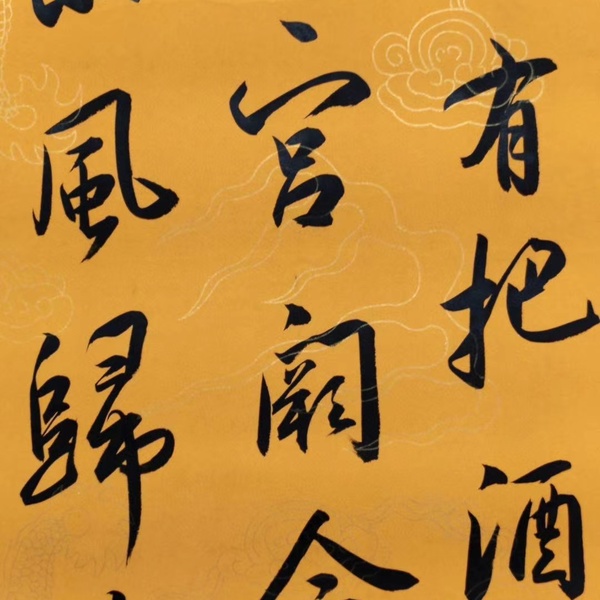 有把酒
宮闕今
風歸